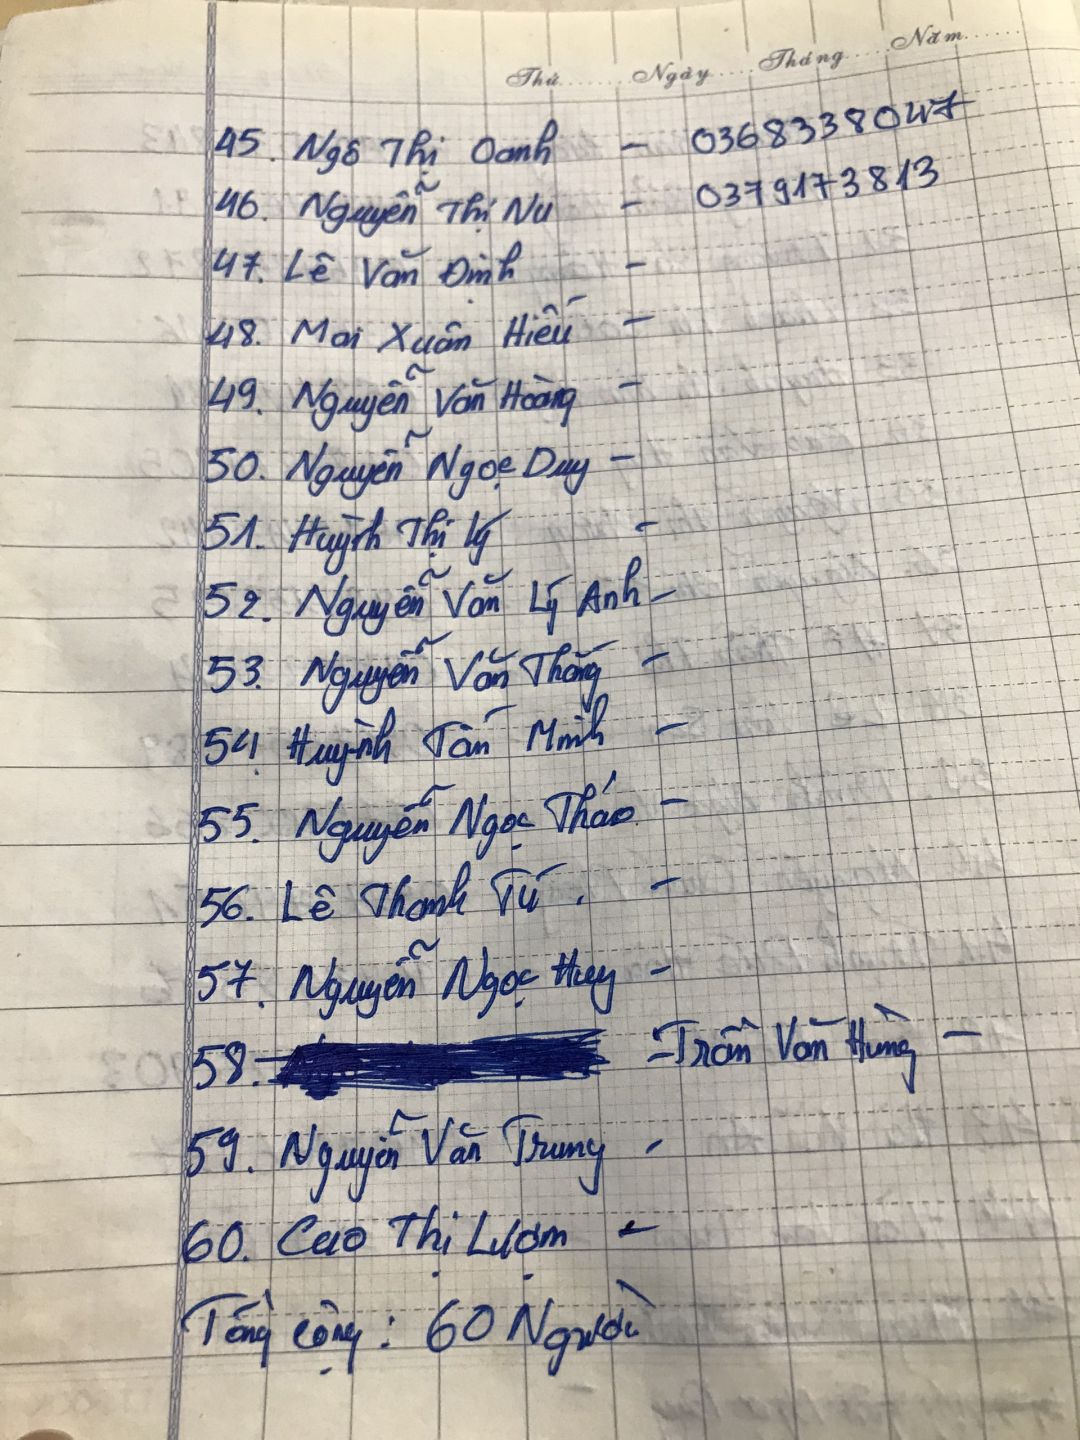 Thứ......Ngày....Tháng....Năm......
45. Ngô Thị Oanh - 0368338047
46. Nguyễn Thị Nu - 0379173813
47. Lê Văn Định -
48. Mai Xuân Hiếu -
49. Nguyễn Văn Hoàng -
50. Nguyễn Ngọc Duy -
51. Huỳnh Thị Lý -
52. Nguyễn Văn Lý Anh -
53. Nguyễn Văn Thắng -
54. Huỳnh Tấn Minh -
55. Nguyễn Ngọc Thảo -
56. Lê Thanh Tú . -
57. Nguyễn Ngọc Huy -
58. - Trần Văn Hùng -
59. Nguyễn Văn Trung -
60. Cao Thị Lượm -
Tổng cộng : 60 Người